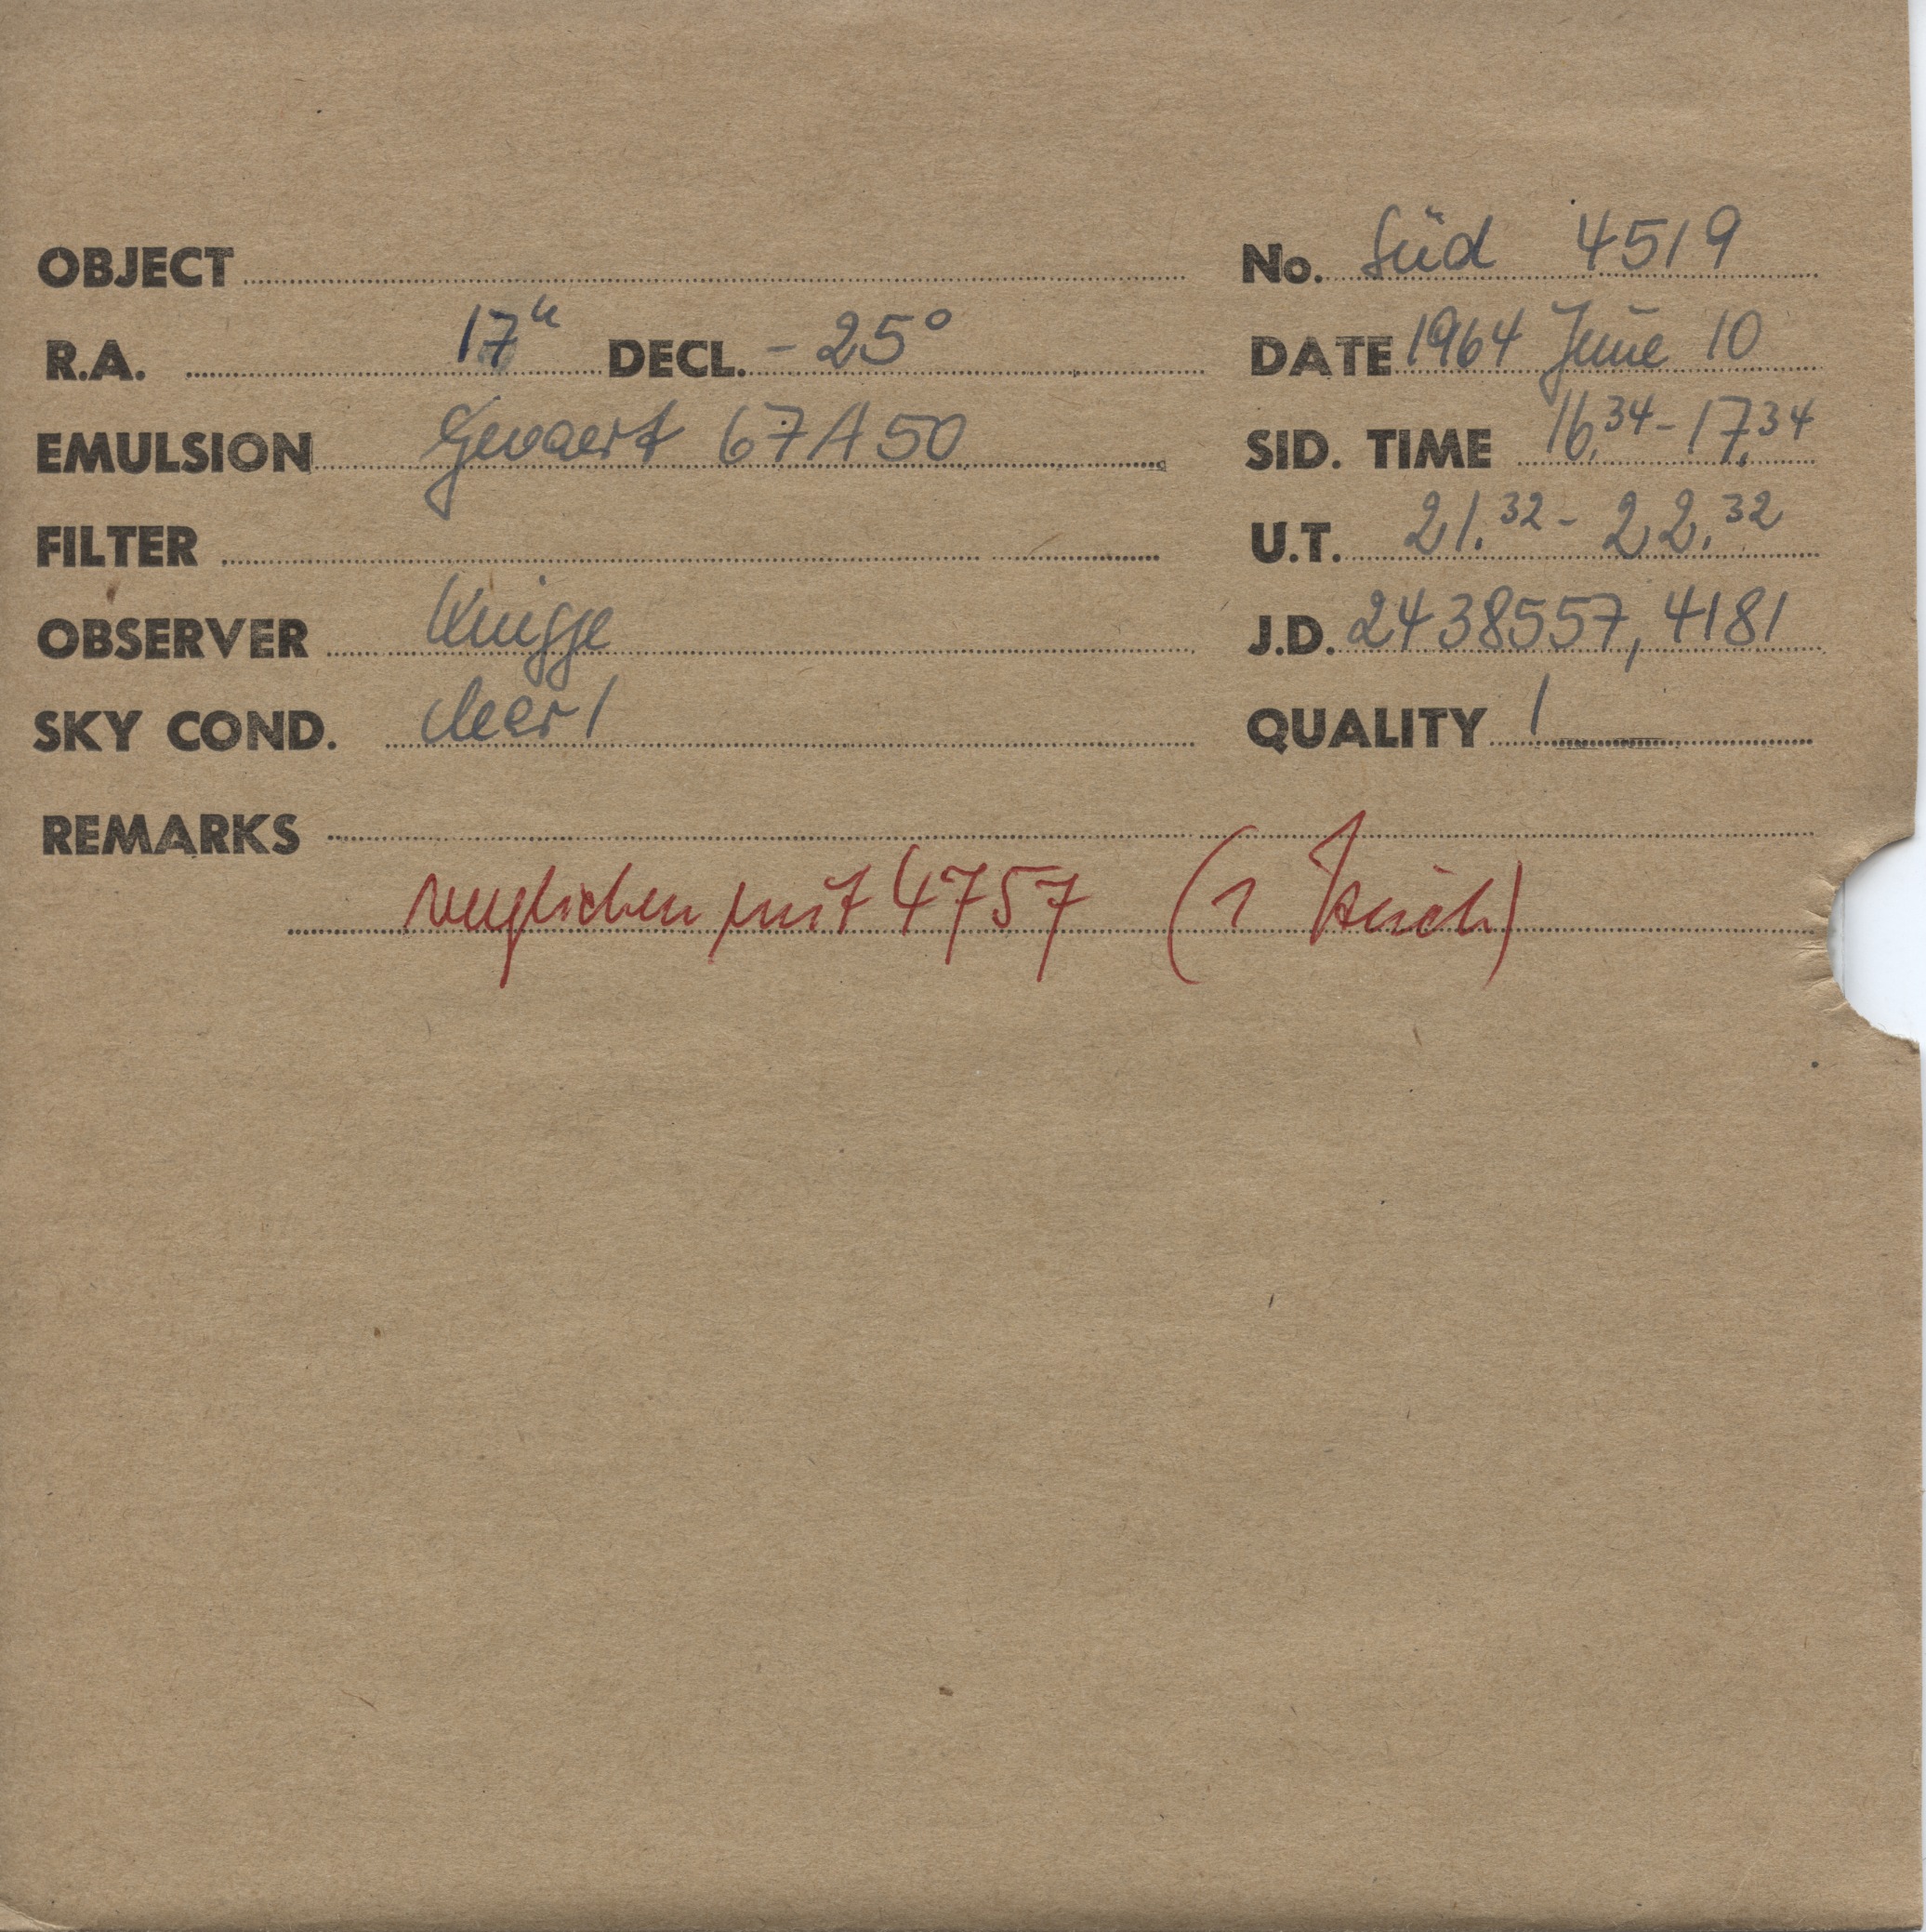 OBJECT No. Süd 4519
R.A. 17h DECL. - 25° DATE 1964 June 10
EMULSION Gevaert 67A50 SID. TIME 16.34 - 17.34
FILTER U.T. 21.32 - 22.32
OBSERVER Knigge J.D. 2438557,4181
SKY COND. clear 1 QUALITY 1
REMARKS
verglichen mit 4757 (1